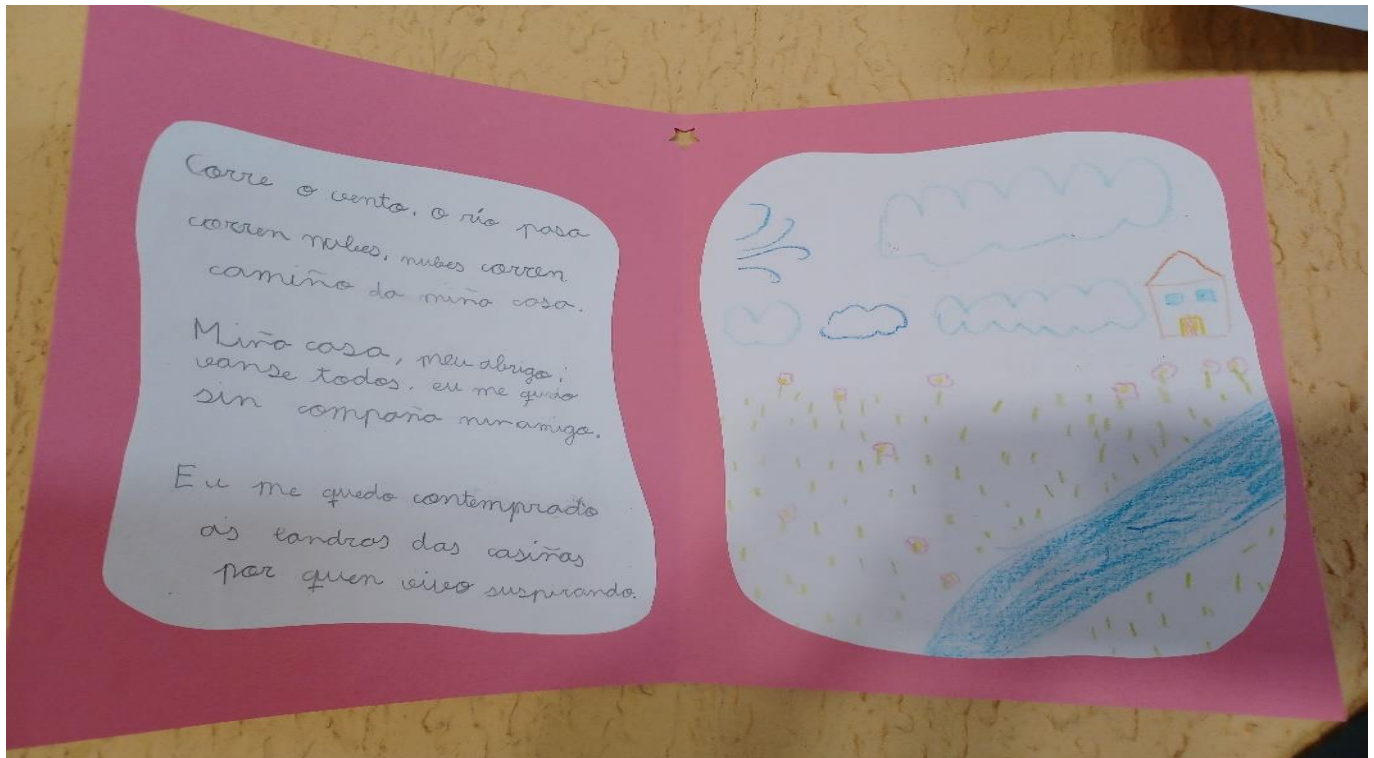 Corre o vento, o río pasa
corren nubes, nubes corren
camiño da miña casa.
Miña casa, meu abrigo;
vanse todos, eu me quedo
sin compaña nin amigo.
Eu me quedo contemprado
ás landras das casiñas
por quen vivo suspirando.